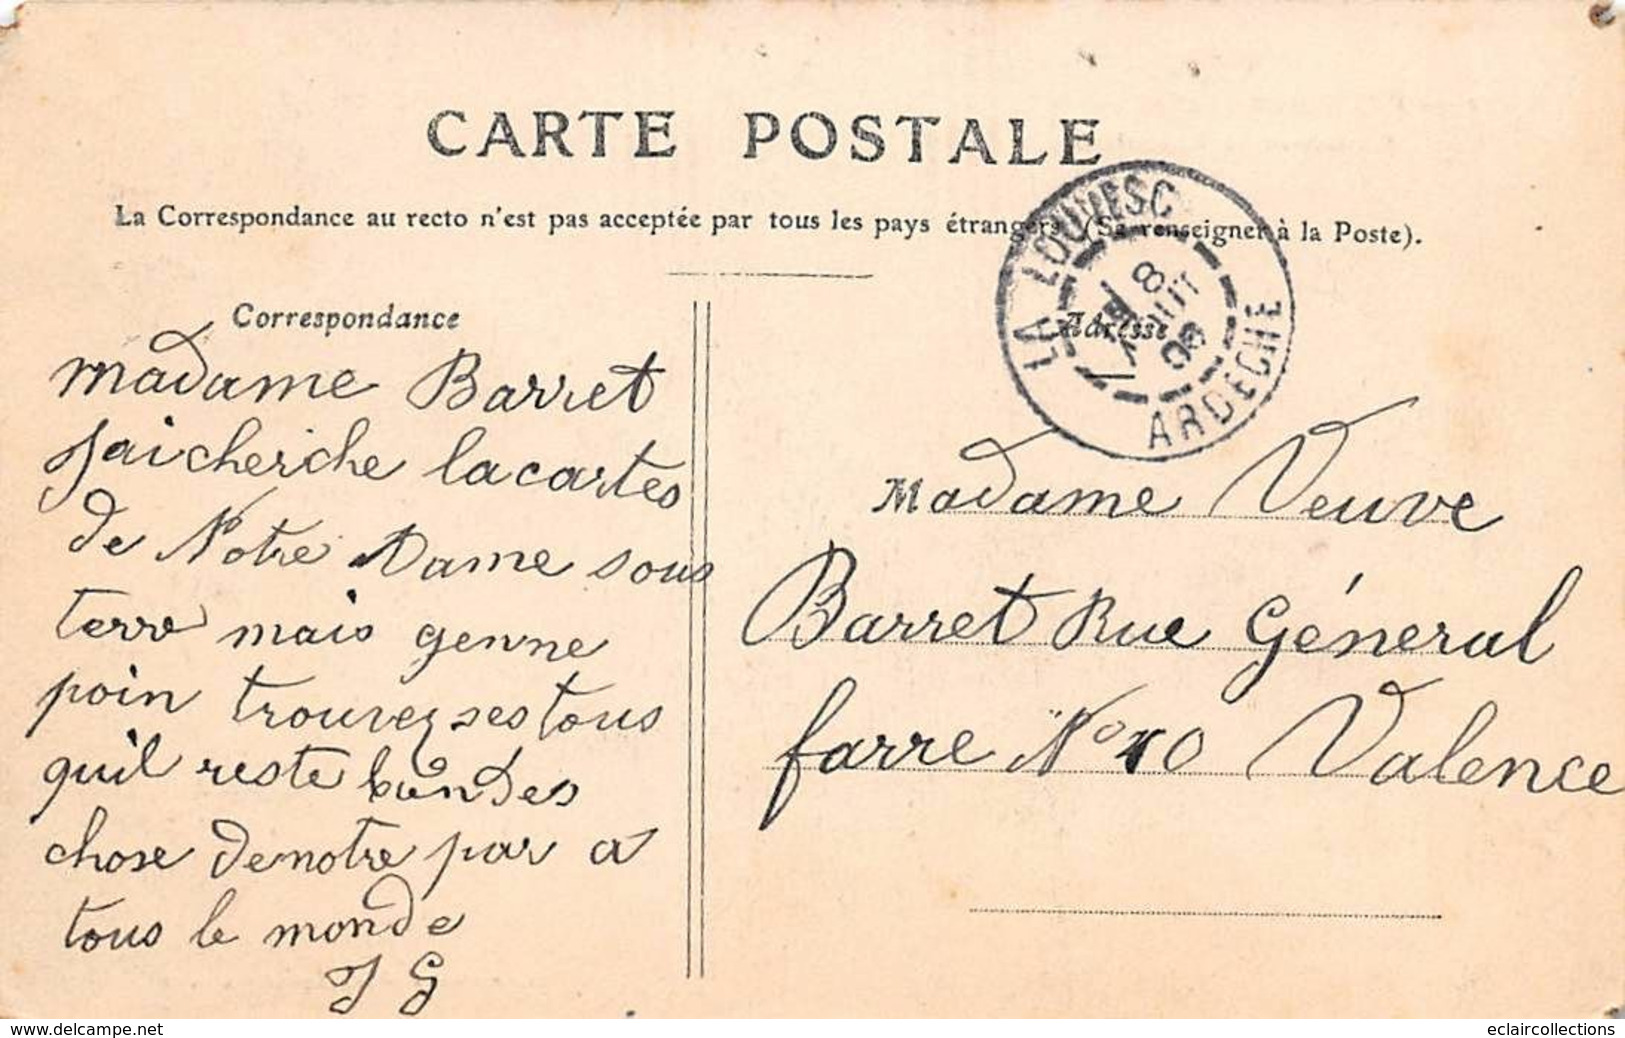 CARTE POSTALE
La Correspondance au recto n'est pas acceptée par tous les pays étrangers. (Se renseigner à la Poste).
Correspondance
madame Barret
Jai cherche la cartes
de Notre Dame sous
terre mais genne
poin trouvez ses tous
quil reste bondes
chose de notre par a
tous le monde
J G
Adresse
LA LOUVESC
8
AOUT
ARDECHE
Madame Veuve
Barret Rue Géneral
farre No 10 Valence
www.delcampe.net
eclaircollections